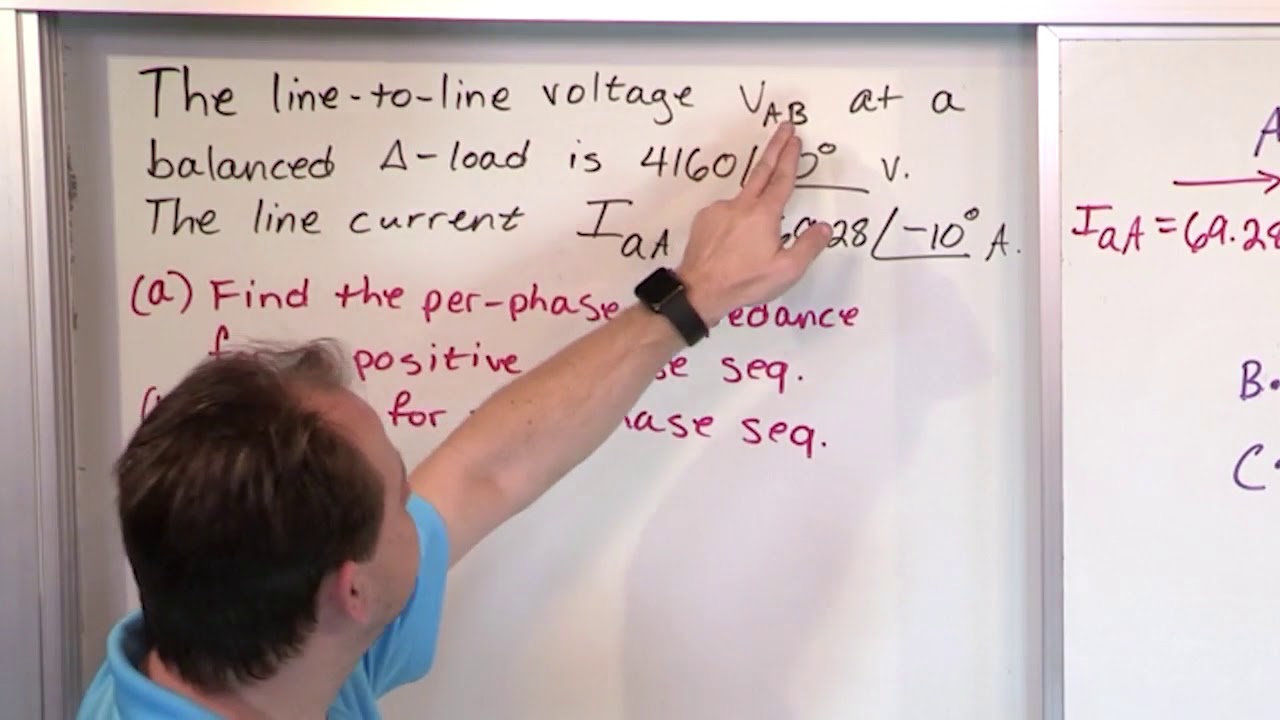 The line-to-line voltage V_AB at a
balanced Δ-load is 4160∠ 0° V.
The line current I_aA 69.28∠-10° A.
(a) Find the per-phase edance
positive se seq.
for hase seq.
A
I_aA = 69.28
B
C